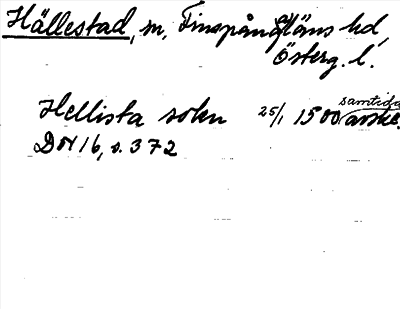 Hällestad, sn, Finspånga läns hd,
Österg. l.
Hellista sokn 25/1 1500 samtida avskr.
DN 16, s. 372